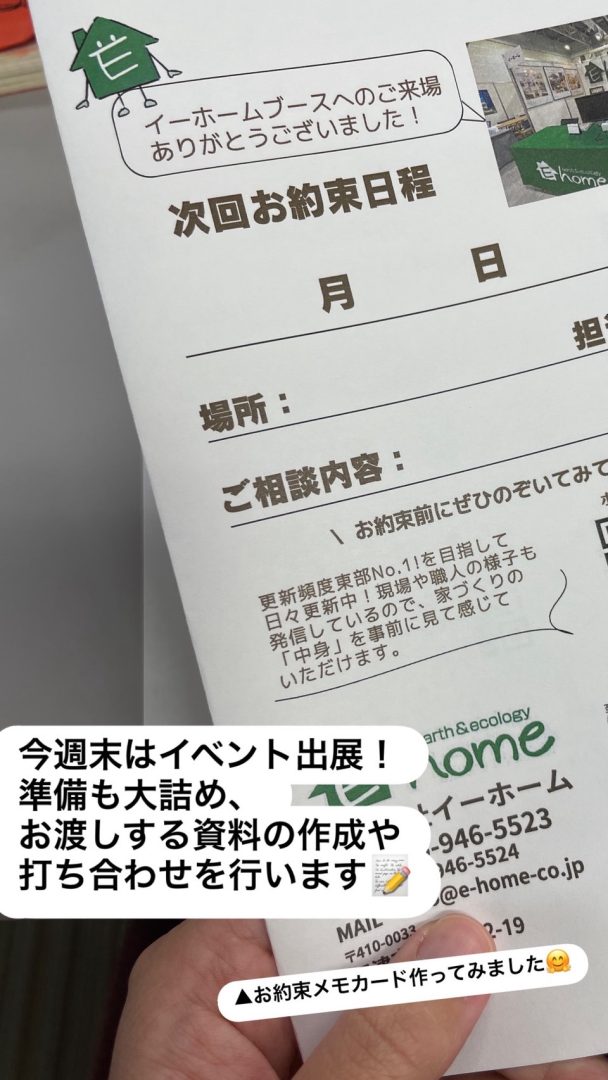 イーホームブースへのご来場
ありがとうございました！
earth & ecology
home
次回お約束日程
月 日
担
場所：
ご相談内容：
\ お約束前にぜひのぞいてみて
更新頻度東部No.1!を目指して
日々更新中！現場や職人の様子も
発信しているので、家づくりの
「中身」を事前に見て感じて
いただけます。
earth & ecology
home
イーホーム
-946-5523
946-5524
MAIL @e-home-co.jp
〒410-0033
2-19
今週末はイベント出展！
準備も大詰め、
お渡しする資料の作成や
打ち合わせを行います📝
▲お約束メモカード作ってみました🤗